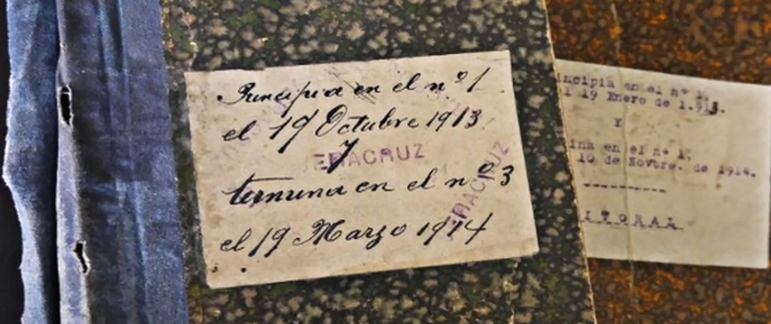 Principia en el nº 1
el 19 Octubre 1913
y
VERACRUZ
termina en el nº 3
VERACRUZ
el 19 Marzo 1914
incipia en el nº 1.
l 19 Enero de 1.913.
Y
ina en el nº 1.
10 de Novbre. de 1914.
----------
ITORAL